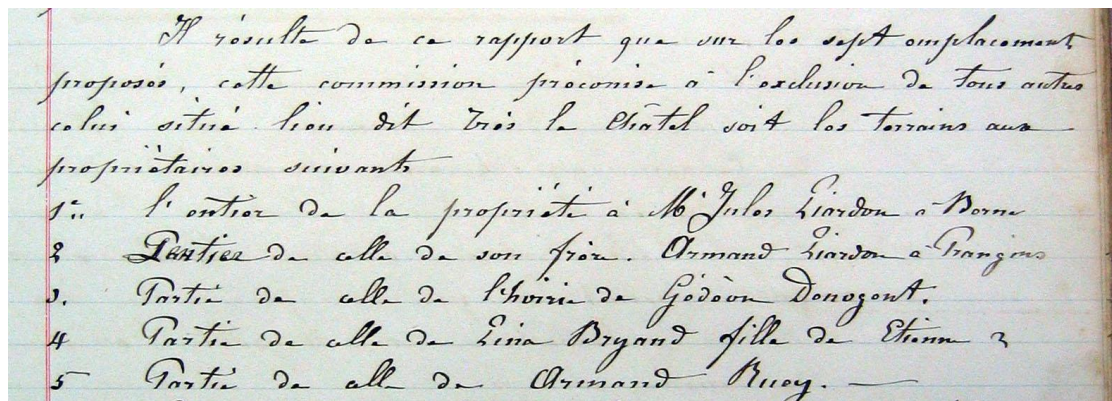 Il résulte de ce rapport que sur les sept emplacement
proposés, cette commission préconise à l'exclusion de tous autres
celui situé lieu dit Très le Châtel soit les terrains aux
propriétaires suivants
1er l'entier de la propriété à Mr Jules Liardon à Berne
2 Partie de celle de son frère. Armand Liardon à Prangins
3. Partie de celle de l'hoirie de Gédéon Denogent.
4 Partie de celle de Lina Bryand fille de Etienne
5 Partie de celle de Armand Ruey. —